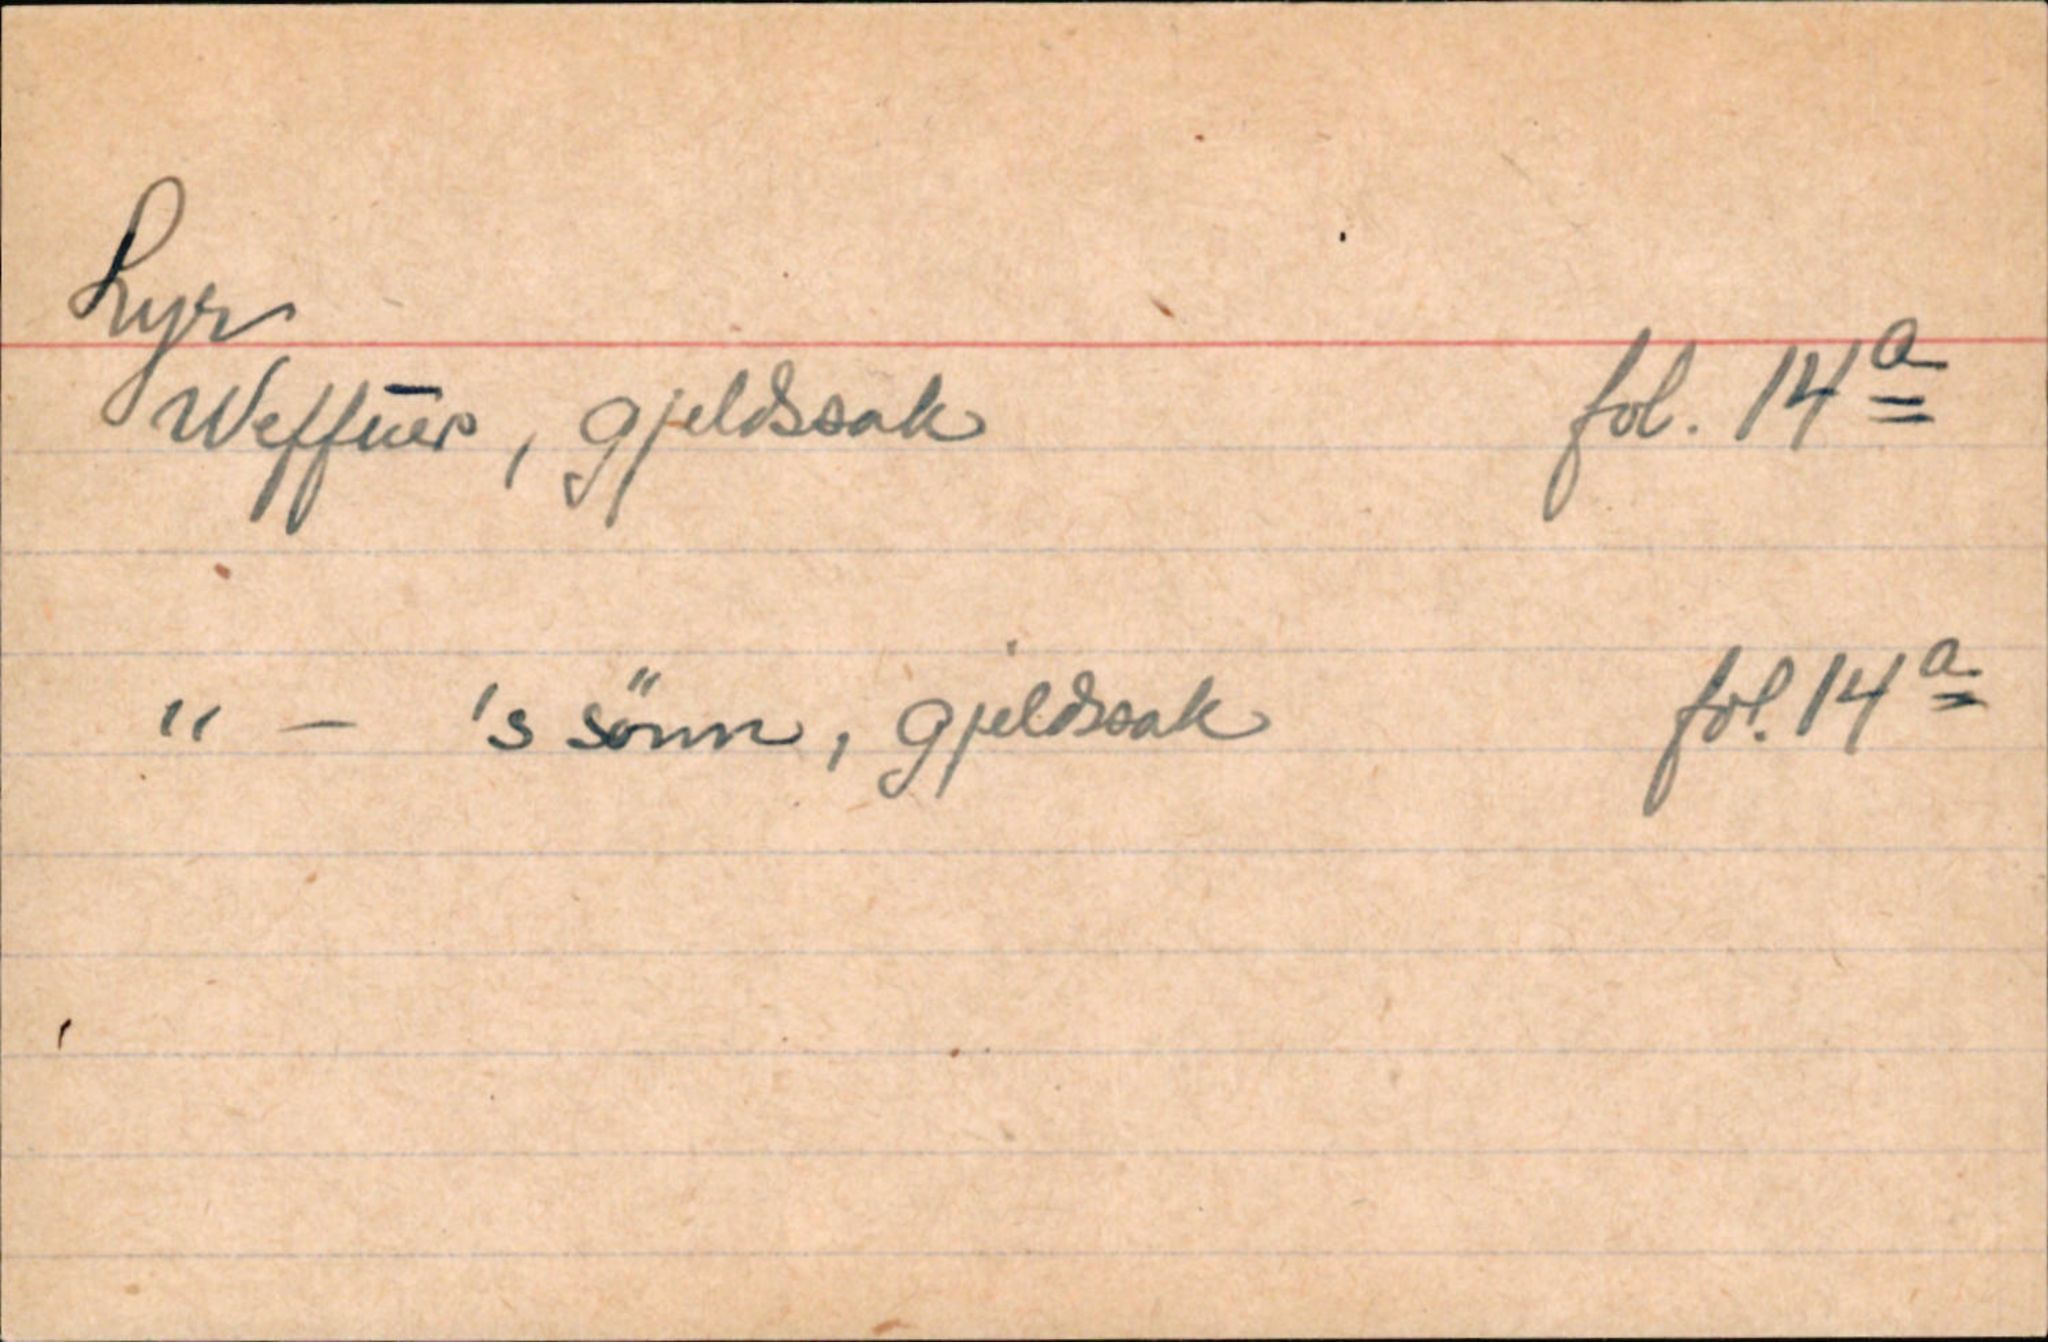 Lyr
Weffuer, gjeldssak fol. 14a
" — 's sönn, gjeldssak fol. 14a